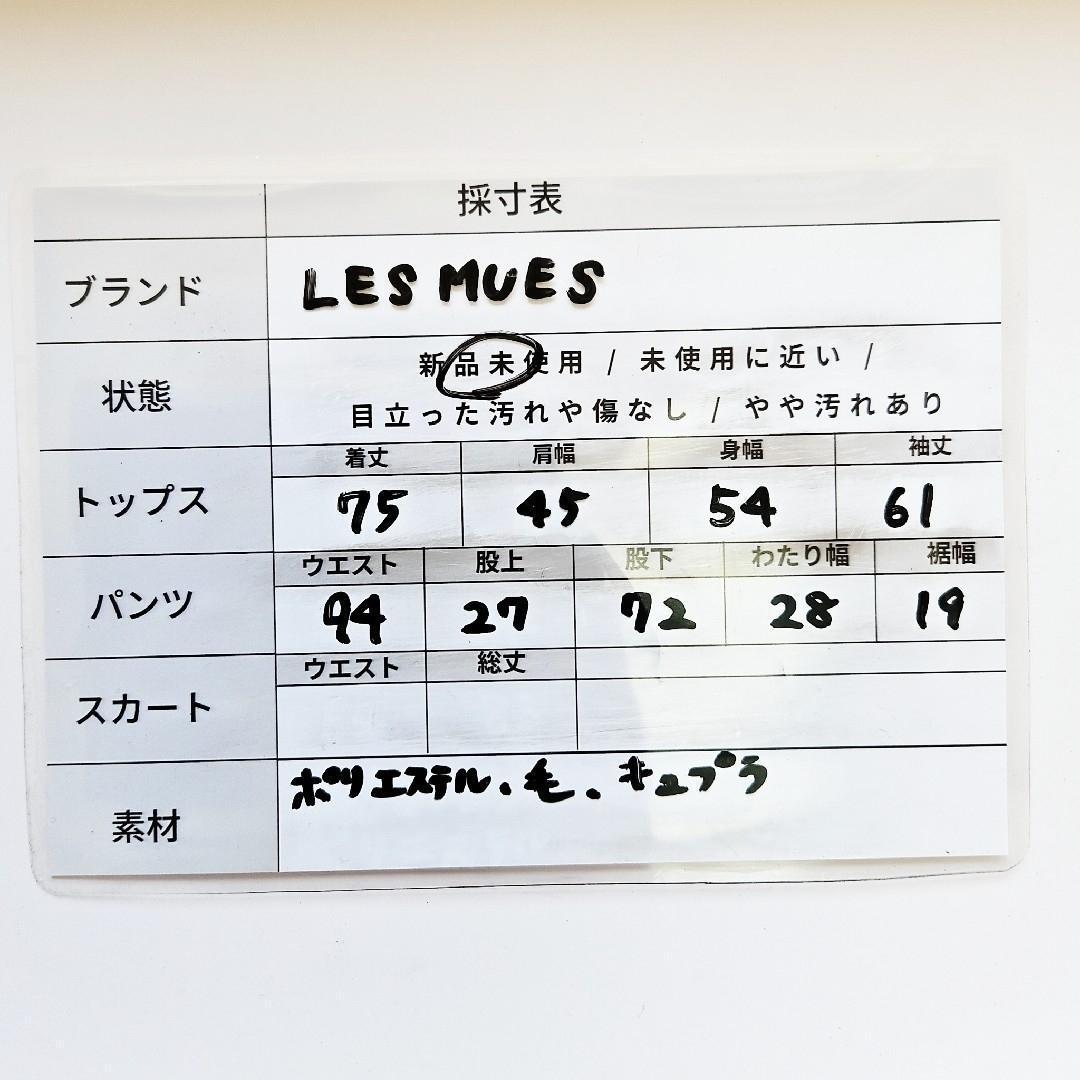 採寸表
ブランド LES MUES
新品未使用 / 未使用に近い /
状態
目立った汚れや傷なし / やや汚れあり
着丈 肩幅 身幅 袖丈
トップス 75 45 54 61
ウエスト 股上 股下 わたり幅 裾幅
パンツ 94 27 72 28 19
ウエスト 総丈
スカート
素材 ポリエステル、毛、キュプラ